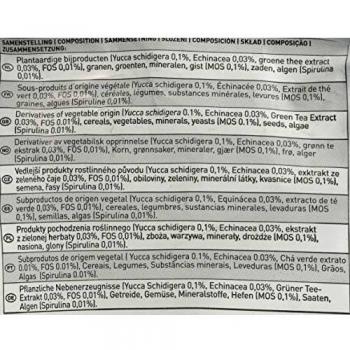 SAMENSTELLING | COMPOSITION | SAMMENSETNING | SLOŽENÍ | COMPOSICIÓN | SKŁAD | COMPOSIÇÃO |
ZUSAMMENSETZUNG:
NL Plantaardige bijproducten (Yucca schidigera 0,1%, Echinacea 0,03%, groene thee extract
0,03%, FOS 0,01%), granen, groenten, mineralen, gist (MOS 0,1%), zaden, algen (Spirulina
0,01%).
FR Sous-produits d'origine végétale (Yucca schidigera 0,1%, Echinacée 0,03%, Extrait de thé
vert 0,03%, FOS 0,01%), céréales, légumes, substances minérales, levures (MOS 0,1%),
graines, algues (Spirulina 0,01%).
GB Derivatives of vegetable origin (Yucca schidigera 0,1%, Echinacea 0,03%, Green Tea Extract
0,03%, FOS 0,01%), cereals, vegetables, minerals, yeasts (MOS 0,1%), seeds, algae
(Spirulina 0,01%).
NO Derivativer av vegetabilsk opprinnelse (Yucca schidigera 0,1%, Echinacea 0,03%, grønn te
ekstrak 0,03%, FOS 0,01%), Korn, grønnsaker, mineraler, gjær (MOS 0,1%), frø, alger
(Spirulina 0,01%).
CZ Vedlejší produkty rostlinného původu (Yucca schidigera 0,1%, Echinacea 0,03%, exktrakt ze
zeleného čaje 0,03%, FOS 0,01%), obiloviny, zeleniny, minerální látky, kvasnice (MOS 0,1%),
semena, řasy (Spirulina 0,01%).
ES Subproductos de origen vegetal (Yucca schidigera 0,1%, Equinácea 0,03%, extracto de té
verde 0,03%, FOS 0,01%), cereales, legumbres, sustancias minerales, levaduras (MOS
0,1%), semillas, algas (Spirulina 0,01%).
PL Produkty pochodzenia roślinnego (Yucca schidigera 0,1%, Echinacea 0,03%, ekstrakt
z zielonej herbaty 0,03%, FOS 0,01%), zboża, warzywa, minerały, drożdże (MOS 0,1%),
nasiona, glony (Spirulina 0,01%).
PT Subprodutos de origem vegetal (Yucca schidigera 0,1%, Echinacea 0,03%, Chá verde extrato
0,01%, FOS 0,01%), Cereais, Legumes, Substâncias minerais, Leveduras (MOS 0,1%), Grãos,
Algas (Spirulina 0.01%).
DE Pflanzliche Nebenerzeugnisse (Yucca schidigera 0,1%, Echinacea 0,03%, Grüner Tee-
Extrakt 0,03%, FOS 0,01%), Getreide, Gemüse, Mineralstoffe, Hefen (MOS 0,1%), Saaten,
Algen (Spirulina 0.01%).